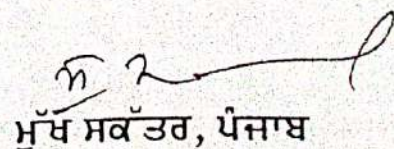 ਮੁੱਖ ਸਕੱਤਰ, ਪੰਜਾਬ